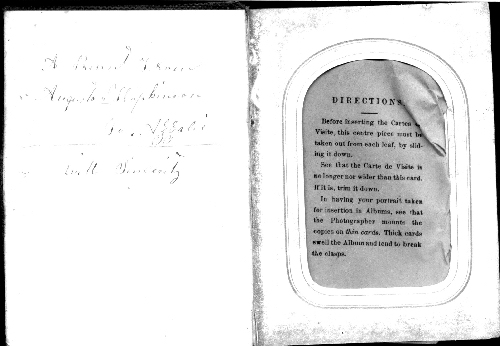 A
Augusta Hopkinson
DIRECTIONS.
Before inserting the Cartes de
Visite, this centre piece must be
taken out from each leaf, by slid-
ing it down.
See that the Carte de Visite is
no longer nor wider than this card.
If it is, trim it down.
In having your portrait taken
for insertion in Albums, see that
the Photographer mounts the
copies on thin cards. Thick cards
swell the Album and tend to break
the clasps.